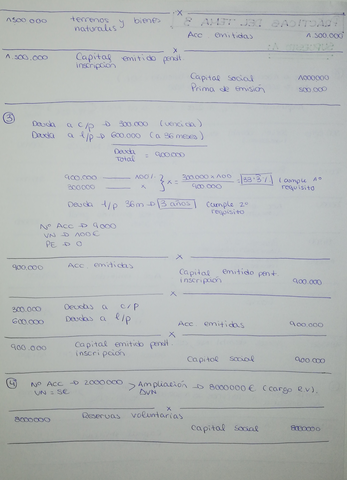 x
1.500.000 terrenos y bienes naturales
Acc emitidas 1.500.000
x
1.500.000 Capital emitido pend. inscripción
Capital social 1000000
Prima de emisión 500.000
③
Deuda a c/p → 300.000 (vencida)
Deuda a l/p → 600.000 (a 36 meses)
Deuda Total = 900.000
900.000 —— 100%
300000 —— x
x = 300.000 x 100 / 900.000 = 33'3% (cumple 1º requisito)
Deuda l/p 36m → 3 años cumple 2º requisito
Nº Acc → 9000
VN → 100€
PE → 0
x
900.000 Acc emitidas
Capital emitido pent inscripción 900.000
x
300.000 Deudas a c/p
600.000 Deudas a l/p
Acc emitidas 900.000
x
900.000 Capital emitido pend. inscripción
Capital social 900.000
④ Nº Acc → 2000000 > Ampliación → 8000000€ (cargo R.V).
VN = 5€ > DVN
x
8000000 Reservas voluntarias
Capital social 8000000